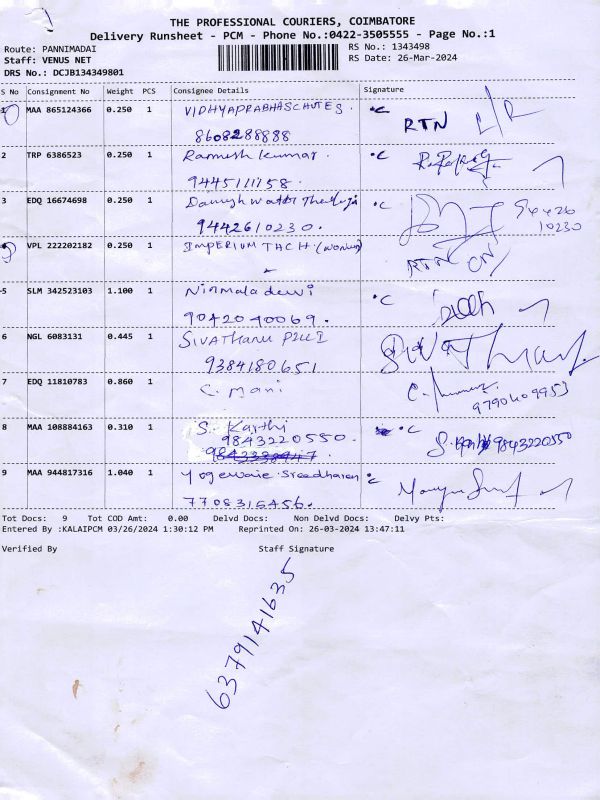 THE PROFESSIONAL COURIERS, COIMBATORE
Delivery Runsheet - PCM - Phone No.:0422-3505555 - Page No.:1
Route: PANNIMADAI
RS No.: 1343498
Staff: VENUS NET
RS Date: 26-Mar-2024
DRS No.: DCJB134349801
S No Consignment No Weight PCS Consignee Details Signature
1 MAA 865124366 0.250 1 °C RTN
8608288888
2 TRP 6386523 0.250 1 Ramesh kumar. °C
9445111158.
3 EDQ 16674698 0.250 1 °C 94426
9442610230. 10230
VPL 222202182 0.250 1 IMPERIUM TACH RTN
5 SLM 342523103 1.100 1 Nirmala devi °C
9042040069.
6 NGL 6083131 0.445 1 SIVAThanu PILLI
9384180651
7 EDQ 11810783 0.860 1 C. Mani
8 MAA 108884163 0.310 1 S. Karthi °C
9843220550. 9843220550
9 MAA 944817316 1.040 1 °C
7708315456.
Tot Docs: 9 Tot COD Amt: 0.00 Delvd Docs: Non Delvd Docs: Delvy Pts:
Entered By :KALAIPCM 03/26/2024 1:30:12 PM Reprinted On: 26-03-2024 13:47:11
Verified By Staff Signature
6379141635